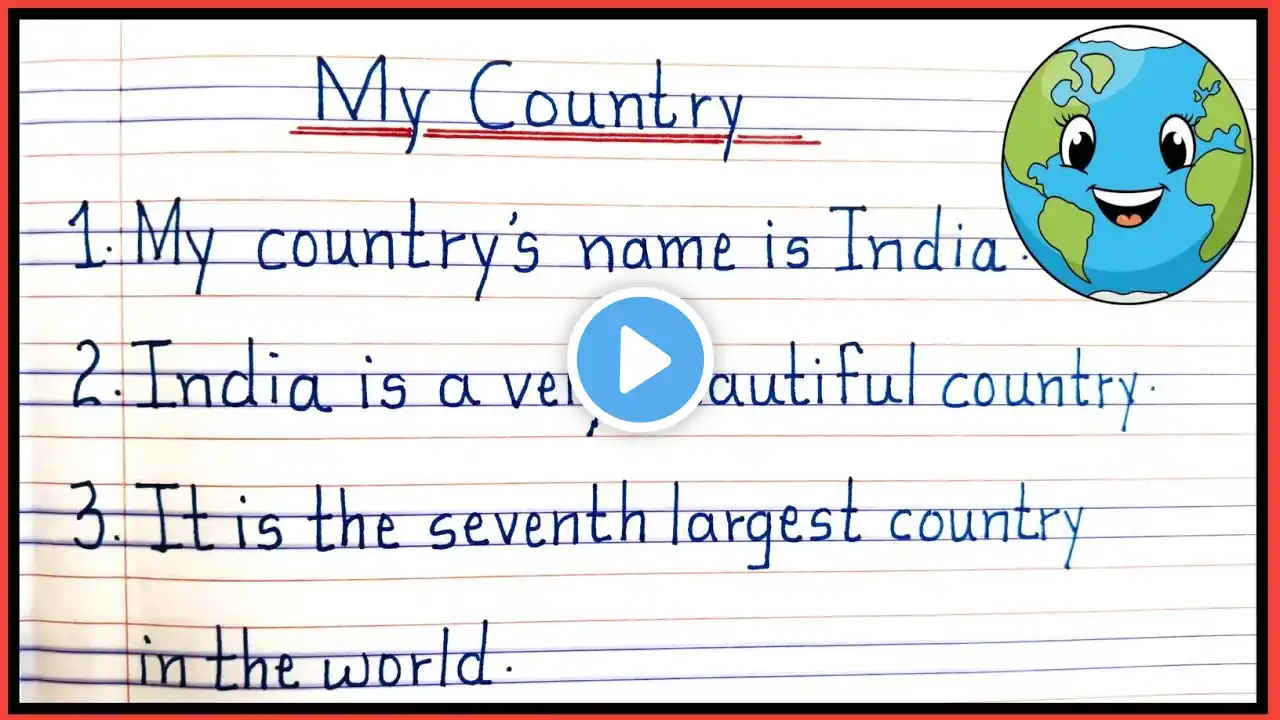 My Country
1. My country's name is India.
2. India is a very beautiful country.
3. It is the seventh largest country
in the world.